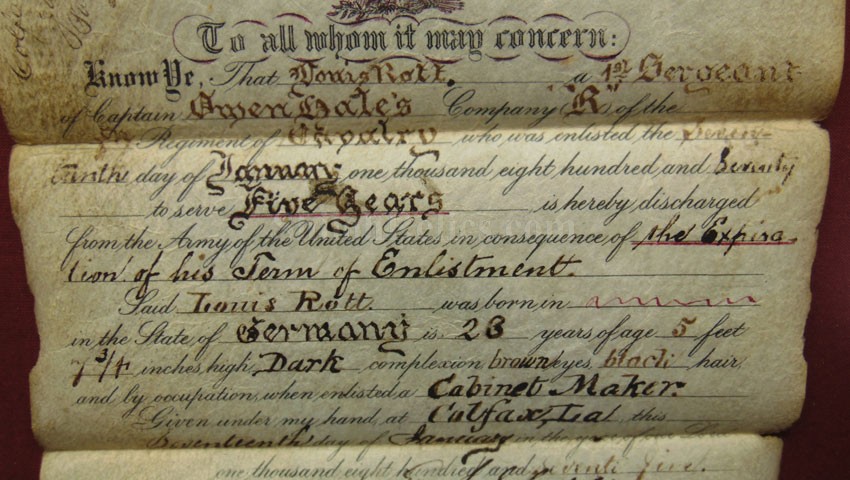 To all whom it may concern:
Know Ye, That Louis Rott. a 1st Sergeant
of Captain Owen Hale's Company ("K") of the
Regiment of Cavalry who was enlisted the Seven-
teenth day of January one thousand eight hundred and Seventy
to serve Five Years is hereby discharged
from the Army of the United States in consequence of the Expira-
tion of his Term of Enlistment.
Said Louis Rott. was born in
in the State of Germany is 23 years of age 5 feet
7 3/4 inches high, Dark complexion brown eyes, black hair,
and by occupation, when enlisted, a Cabinet Maker.
Given under my hand, at Colfax, La this
Seventeenth day of January in the year of
one thousand eight hundred and Seventy five.